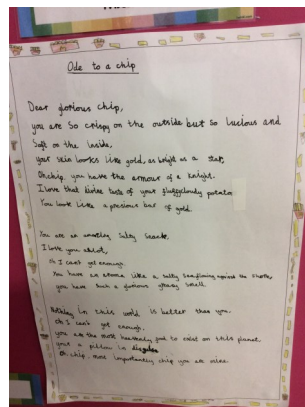 Ode to a chip
Dear glorious chip,
you are so crispy on the outside but so lucious and
soft on the inside,
your skin looks like gold, as bright as a star,
Oh chip, you have the armour of a knight.
I love that divine taste of your fluffy cloudy potato
You look like a precious bar of gold.
You are an amazing salty snack.
I love you alot,
oh I can't get enough.
You have an aroma like a salty sea flowing against the shore,
you have such a glorious greasy smell.
Nothing in this world is better than you
oh I can't get enough,
you are the most heavenly god to exist on this planet.
your a pillow in disguise
Oh chip, more importantly chip you are mine.